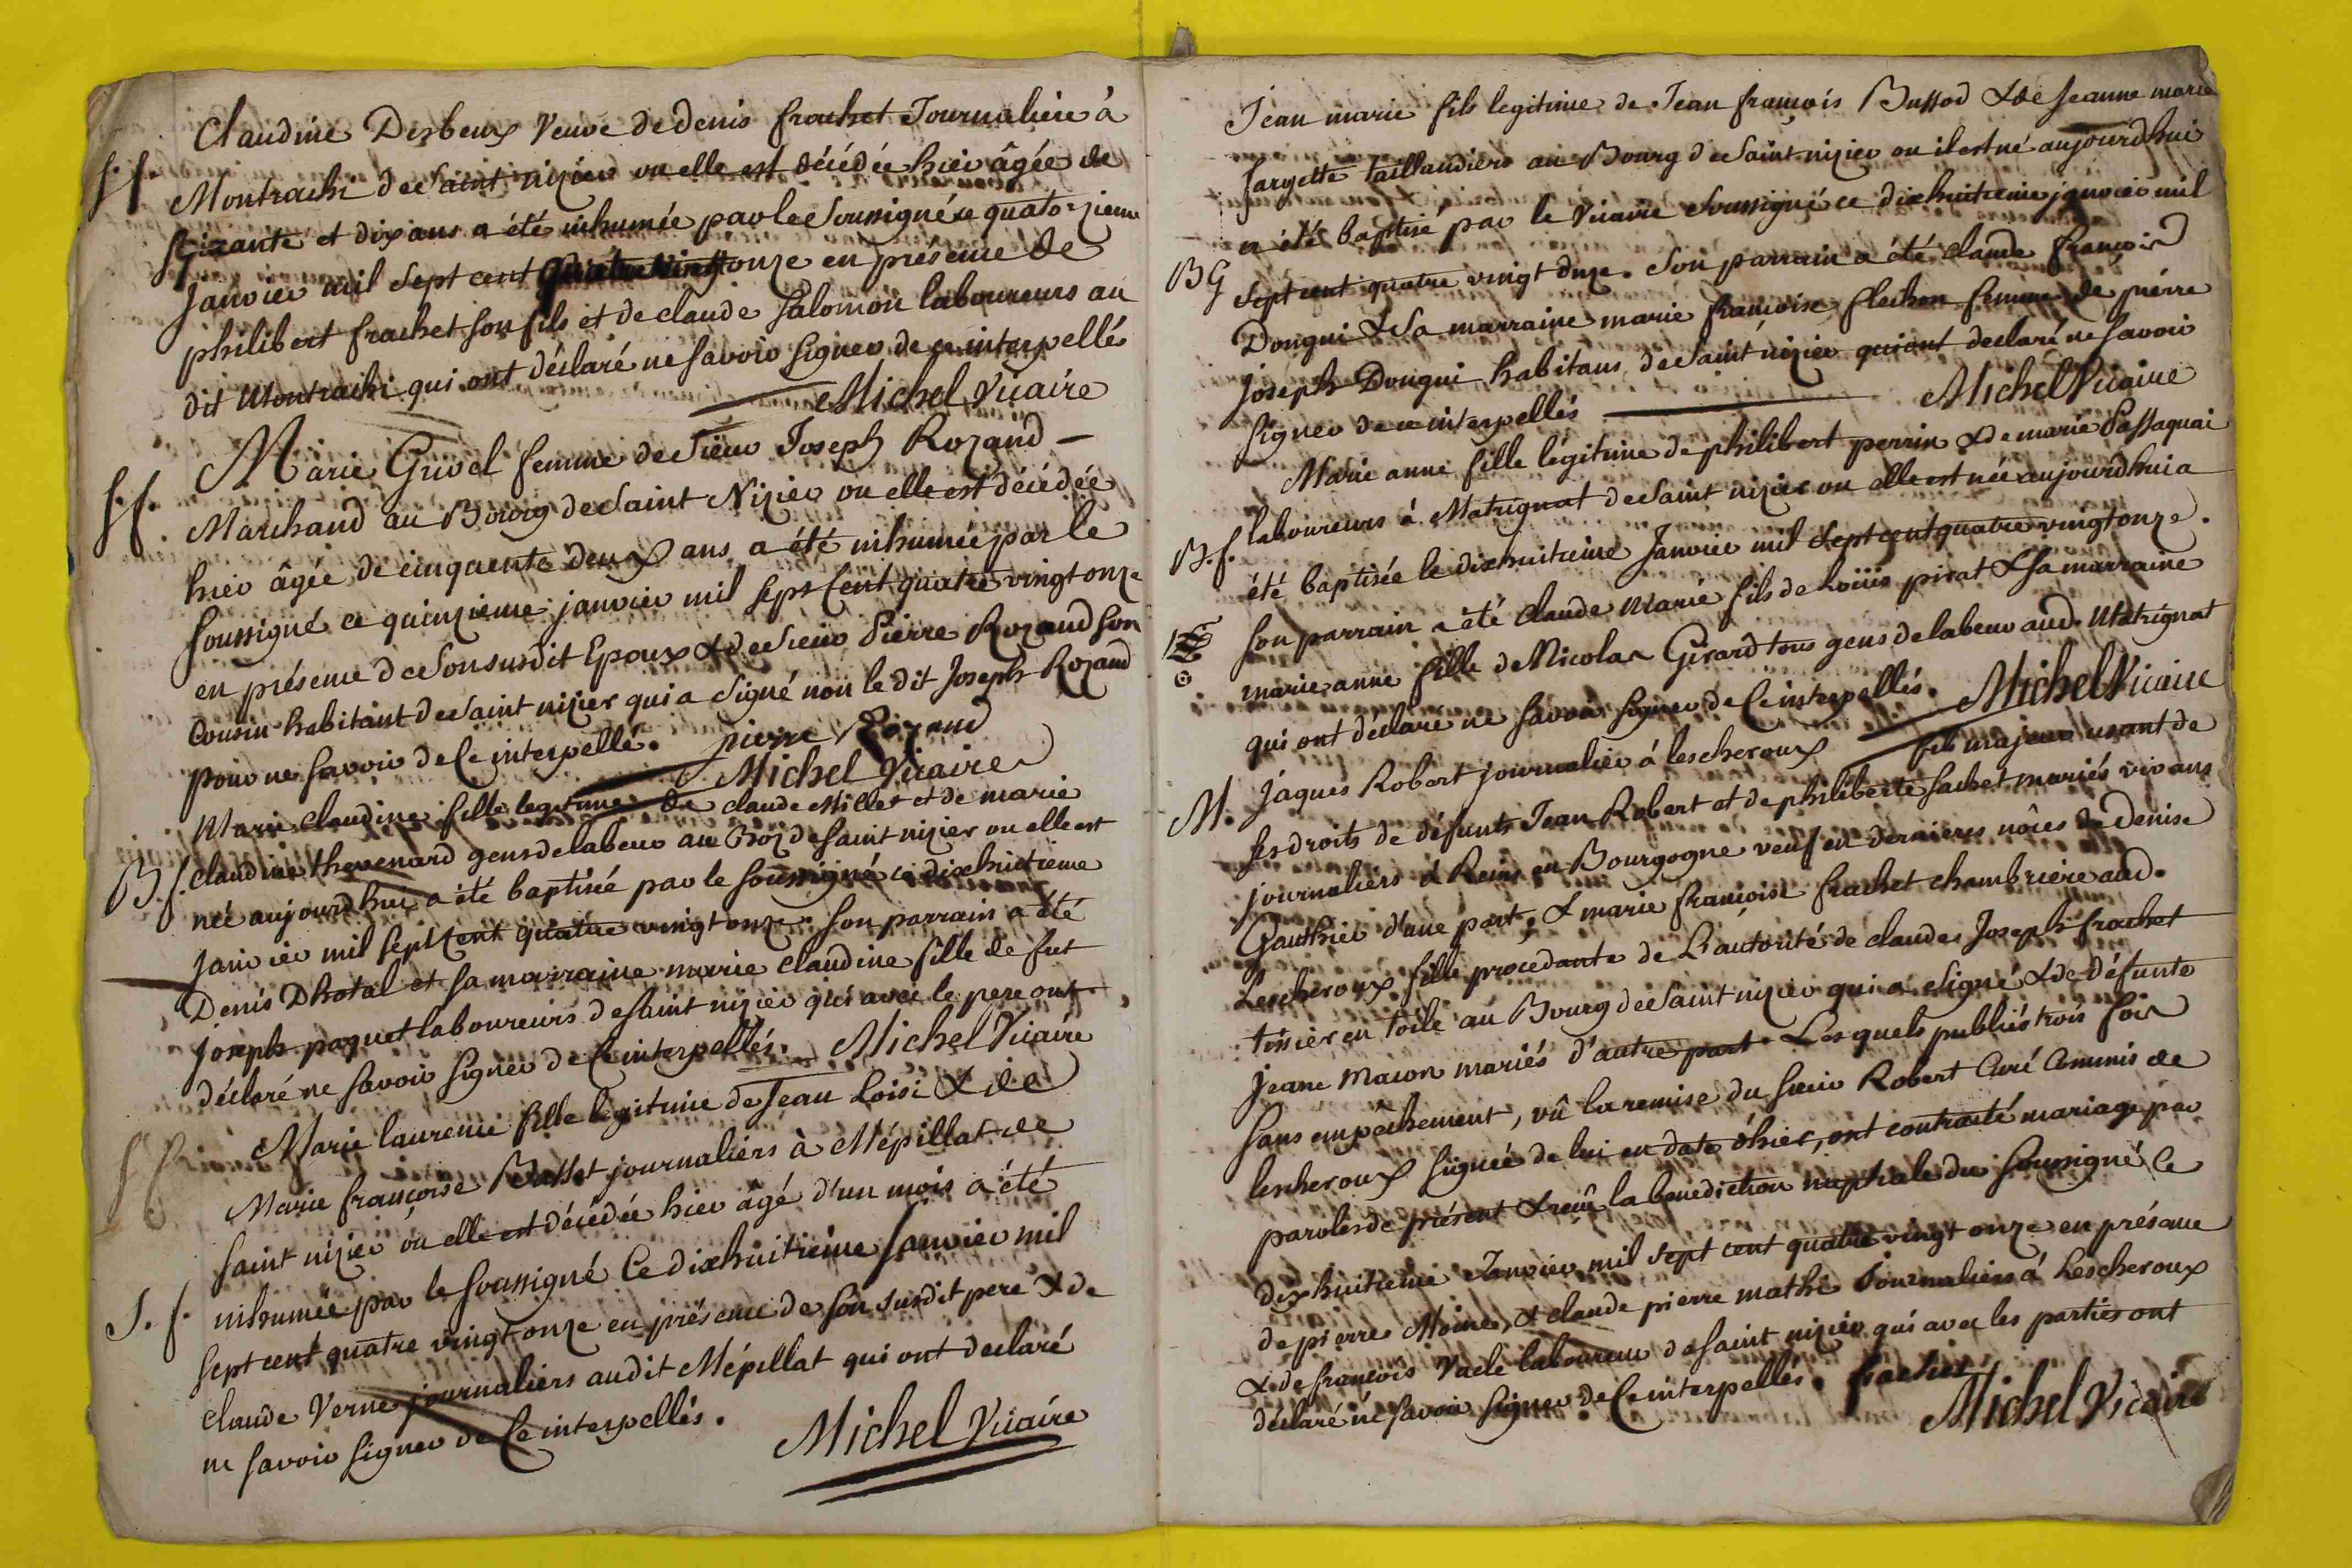 Claudine Desbeux Veuve de denis frachet Journaliere à
S. f. Montrachi de Saint nizier ou elle est décédée hier âgée de
soizante et dix ans a été inhumée par le Soussigné ce quatorzieme
Janvier mil sept cent quatre vingt onze en présence de
philibert frachet son fils et de claude Salomon laboureurs au
dit Montrachi qui ont déclaré ne savoir signer de ce interpellés
Michel Vicaire
Marie Grivel femme de Sieur Joseph Rozand
S. f. Marchand au Bourg de Saint Nizier ou elle est décédée
hier âgée de cinquante deux ans a été inhumée par le
soussigné ce quinzieme janvier mil sept Cent quatre vingt onze
en présence de Son susdit Epoux & de Sieur Pierre Rozand son
Cousin habitant de Saint nizier qui a Signé non le dit Joseph Rozand
pour ne Savoir de Ce interpellé. pierre Rozand
Michel Vicaire
Marie claudine fille legitime de claude Millet et de marie
B. f. claudine thevenard gens de labeur au Boz de Saint nizier ou elle est
née aujourdhui a été baptisée par le soussigné ce dixhuitieme
janvier mil sept Cent quatre vingt onze. son parrain a été
Denis Dhotal et sa marraine marie claudine fille de fut
joseph paquet laboureurs de saint nizier qui avec le pere ont
déclaré ne savoir signer de Ce interpellés. Michel Vicaire
Marie laurence fille légitime de Jean Loisi & de
Marie françoise Basset journaliers à Mépillat de
Saint nizier ou elle est décédée hier âgé d'un mois a été
S. f. inhumée par le soussigné Ce dixhuitieme Janvier mil
sept cent quatre vingt onze en présence de son susdit pere & de
claude Verne journaliers audit Mépillat qui ont declaré
ne savoir signer de Ce interpellés.
Michel Vicaire
Jean marie fils legitime de Jean françois Buffod & de Jeanne marie
Jargette taillandiers au Bourg de Saint nizier ou il est né aujourdhui
a été baptisé par le Vicaire Soussigné ce dixhuitieme janvier mil
BG sept cent quatre vingt onze. Son parrain a été claude françois
Dongui & Sa marraine marie françoise flechon femme de pierre
joseph Dongui habitans de Saint nizier qui ont declaré ne savoir
signer de ce interpellés
Michel Vicaire
Marie anne fille légitime de philibert perrin & de marie Passaquai
B. f. laboureurs à Matrignat de Saint nizier ou elle est née aujourdhui a
été baptisée le dixhuitieme Janvier mil Sept cent quatre vingt onze.
son parrain a été claude Marie fils de Loüis pirat & sa marraine
marie anne fille de Nicolas Girard tous gens de labeur aud. Matrignat
qui ont déclaré ne savoir signer de Ce interpellés. Michel Vicaire
M. Jaques Robert journalier à lescheroux fils majeur usant de
ses droits de défunts Jean Robert et de philiberte sachet mariés vivans
journaliers à Reins en Bourgogne veuf en dernieres nôces de Denise
Gauthier d'une part, & marie françoise frachet chambriere aud.
Lescheroux fille procedante de L'autorité de claude Joseph frachet
tissier en toile au Bourg de Saint nizier qui a Signé & de défunte
jeane Macon mariés d'autre part. Les quels publiés trois fois
sans empêchement, vû la remise du sieur Robert Curé Commis de
lescheroux signée de lui en date d'hier, ont contracté mariage par
paroles de présent & reçû la benediction nuptiale du Soussigné le
dixhuitieme Janvier mil sept cent quatre vingt onze en présence
de pierre Moine, & claude pierre mathi Journaliers à Lescheroux
& de françois Vacle laboureur de saint nizier qui avec les parties ont
déclaré ne savoir signer de Ce interpellés. frachet
Michel Vicaire